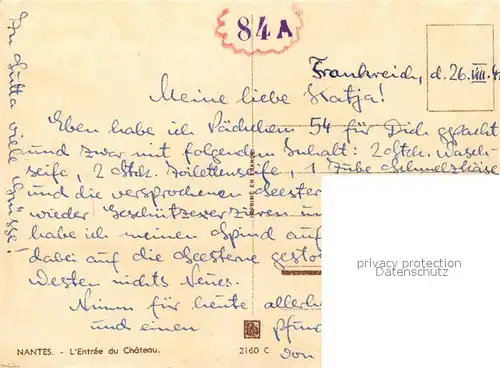 84A
Frankreich, d. 26. VIII. 4
Meine liebe Katja!
Eben habe ich Päckchen 54 für Dich gepackt
und zwar mit folgenden Inhalt: 2 Stck. Wasch-
seife, 2 Stck. Toilettenseife, 1 Tube Schmelzkäse
und die versprochenen Seester
wieder Geschützexerzieren un
habe ich meinen Spind auf
dabei auf die Seesterne gesto
Westen nichts Neues.
Nimm für heute allerh
und einen
von
An Jutta viele Grüsse!
IMPRIMÉ EN FRANCE
NANTES. - L'Entrée du Château.
2160 C
privacy protection
Datenschutz